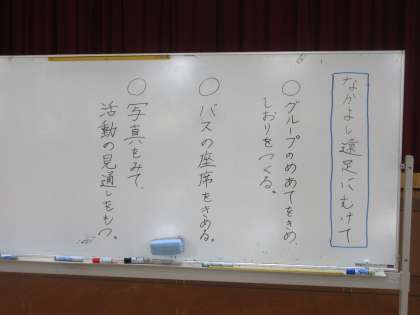 なかよし遠足にむけて
○グループのめあてをきめ、
しおりをつくる。
○バスの座席をきめる。
○写真をみて、
活動の見通しをもつ。